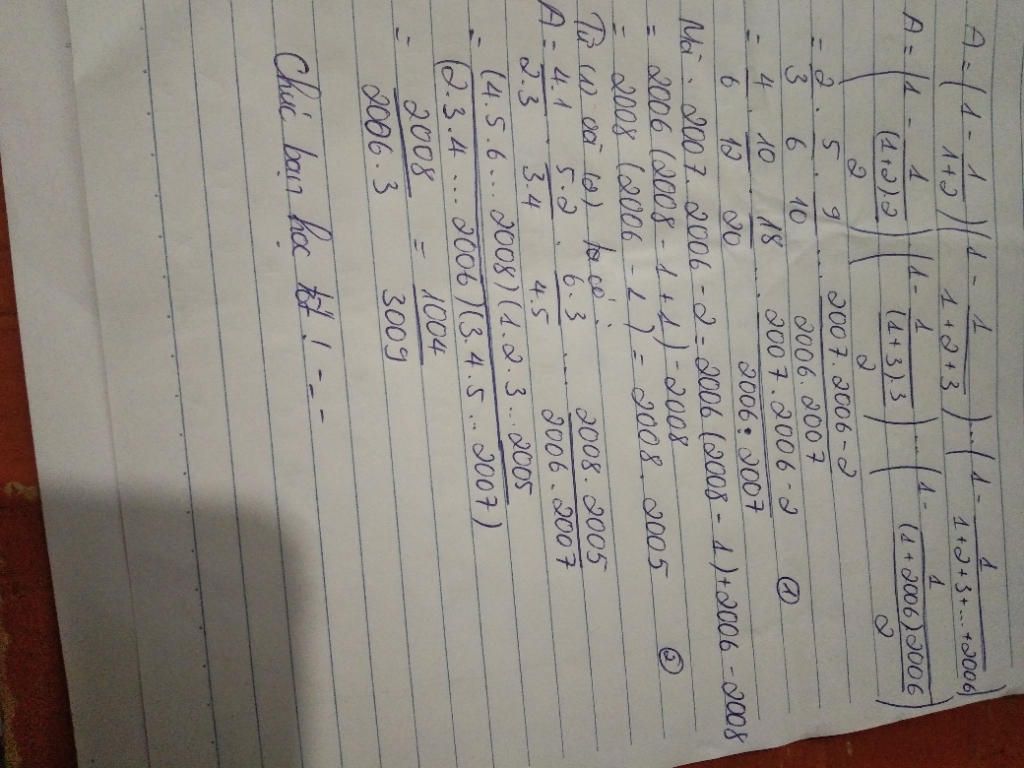 A = (1 - 1/(1+2))(1 - 1/(1+2+3))...(1 - 1/(1+2+3+...+2006))
A = (1 - 1/((1+2).2/2))(1 - 1/((1+3).3/2))...(1 - 1/((1+2006)2006/2))
= 2/3 . 5/6 . 9/10 .... (2007.2006-2)/(2006.2007)
= 4/6 . 10/12 . 18/20 .... (2007.2006-2)/(2006.2007) (1)
Mà: 2007.2006-2 = 2006(2008-1)+2006-2008
= 2006(2008-1+1)-2008
= 2008(2006-1) = 2008.2005 (2)
Từ (1) và (2) ta có:
A = 4.1/2.3 . 5.2/3.4 . 6.3/4.5 .... 2008.2005/2006.2007
= (4.5.6...2008)(1.2.3...2005)/(2.3.4...2006)(3.4.5...2007)
= 2008/2006.3 = 1004/3009
Chúc bạn học tốt! -_-